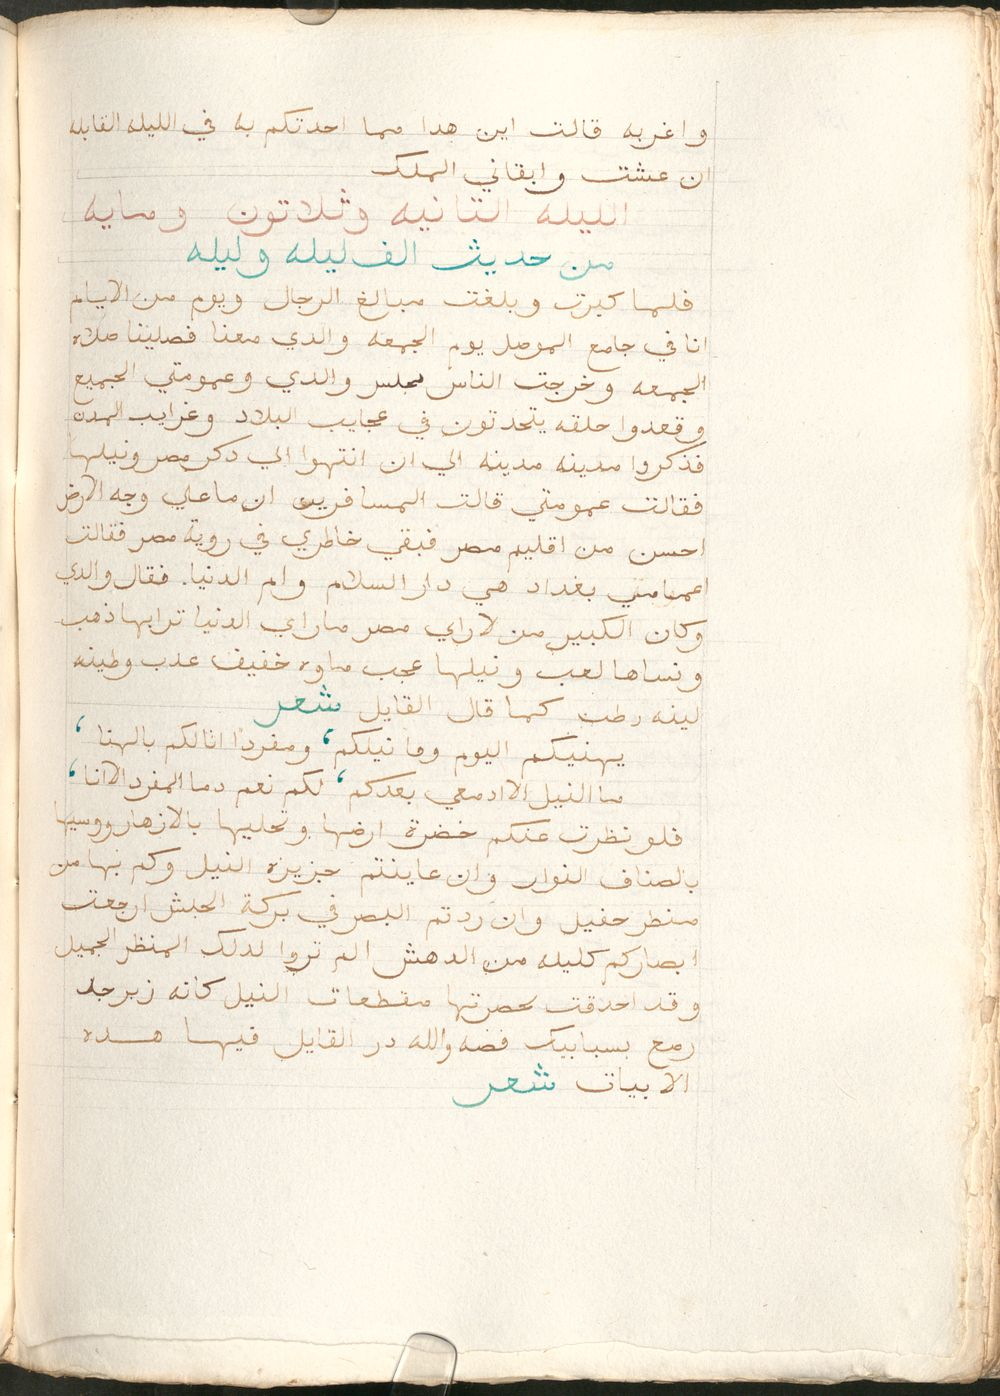 واغربه قالت اين هدا مما احدتكم به في الليله القابله
ان عشت وابقاني الملك
الليله التانيه وثلاتون ومايه
من حديث الف ليله وليله
فلما كبرت وبلغت مبالغ الرجال ويوم من الايام
انا في جامع الموصل يوم الجمعه والدي معنا فصلينا صلاه
الجمعه وخرجت الناس مجلس والدي وعمومتي الجميع
وقعدوا حلقه يتحدتون في عجايب البلاد وغرايب المدن
فذكروا مدينه مدينه الي ان انتهوا الي دكر مصر ونيلها
فقالت عمومتي قالت المسافرين ان ما علي وجه الارض
احسن من اقليم مصر فبقي خاطري في روية مصر فقالت
اعمامتي بغداد هي دار السلام وام الدنيا. فقال والدي
وكان الكبير من لا راي مصر ما راي الدنيا ترابها ذهب
ونساها لعب ونيلها عجب ماوه خفيف عدب وطينه
لينه رطب كما قال القايل شعر
يهنيكم اليوم وما نيلكم، ومفردا انا لكم بالهنا،
ما النيل الا ادمعي بعدكم، لكم نعم دما المفرد الا انا،
فلو نظرت عنكم خضرة ارضها وتحليها بالازهار ووسيها
بالصناف النوار وان عاينتم جزيره النيل وكم بها من
منطر حفيل وان ردتم البصر في بركة الحبش ارجعت
ابصاركم كليله من الدهش الم تروا لدلك المنظر الجميل
وقد احدقت بحصرتها مقطعات النيل كانه زبرجد
رصع بسبابيك فضه ولله در القايل فيها هده
الابيات شعر